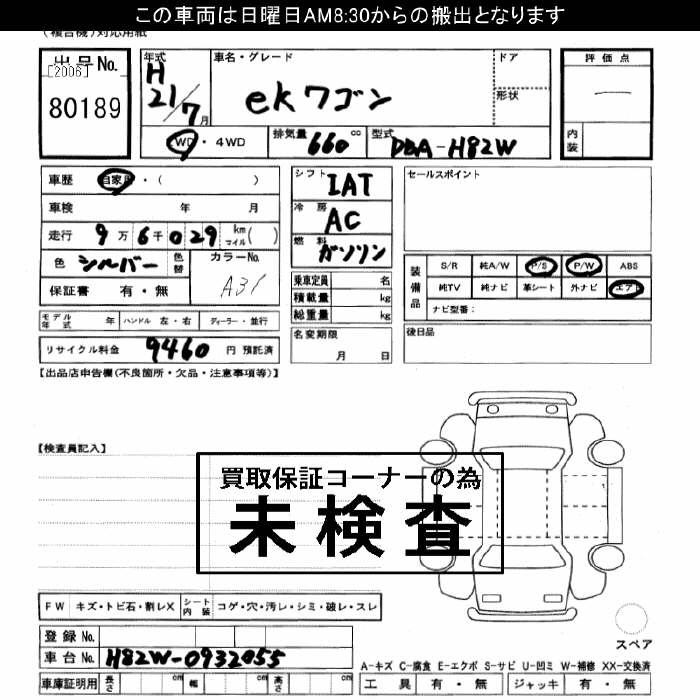 この車両は日曜日AM8:30からの搬出となります
(複合機)対応用紙
出品No.
[2006]
80189
年式
H
21/7月
車名・グレード
ekワゴン
ドア
形状
評価点
―
内装
2WD・4WD
排気量 660 cc
型式 DBA-H82W
車歴 自家用・( )
車検 年 月
走行 9万6千029 km マイル( )
色 シルバー 色替
カラーNo.
A31
保証書 有・無
シフト IAT
冷房 AC
燃料 ガソリン
乗車定員 名
積載量 kg
総重量 kg
セールスポイント
装備品
S/R 純A/W P/S P/W ABS
純TV 純ナビ 革シート 外ナビ エアB
ナビ型番:
モデル年式 年 ハンドル 左・右 ディーラー・並行
リサイクル料金 9460 円 預託済
名変期限
月 日
後日品
【出品店申告欄(不良箇所・欠品・注意事項等)】
【検査員記入】
買取保証コーナーの為
未検査
FW キズ・トビ石・割レX シート内装 コゲ・穴・汚レ・シミ・破レ・スレ
登録No.
車台No. H82W-0932055
車庫証明用 長さ cm 幅 cm 高さ cm
スペア
A-キズ C-腐食 E-エクボ S-サビ U-凹ミ W-補修 XX-交換済
工具 有・無 ジャッキ 有・無